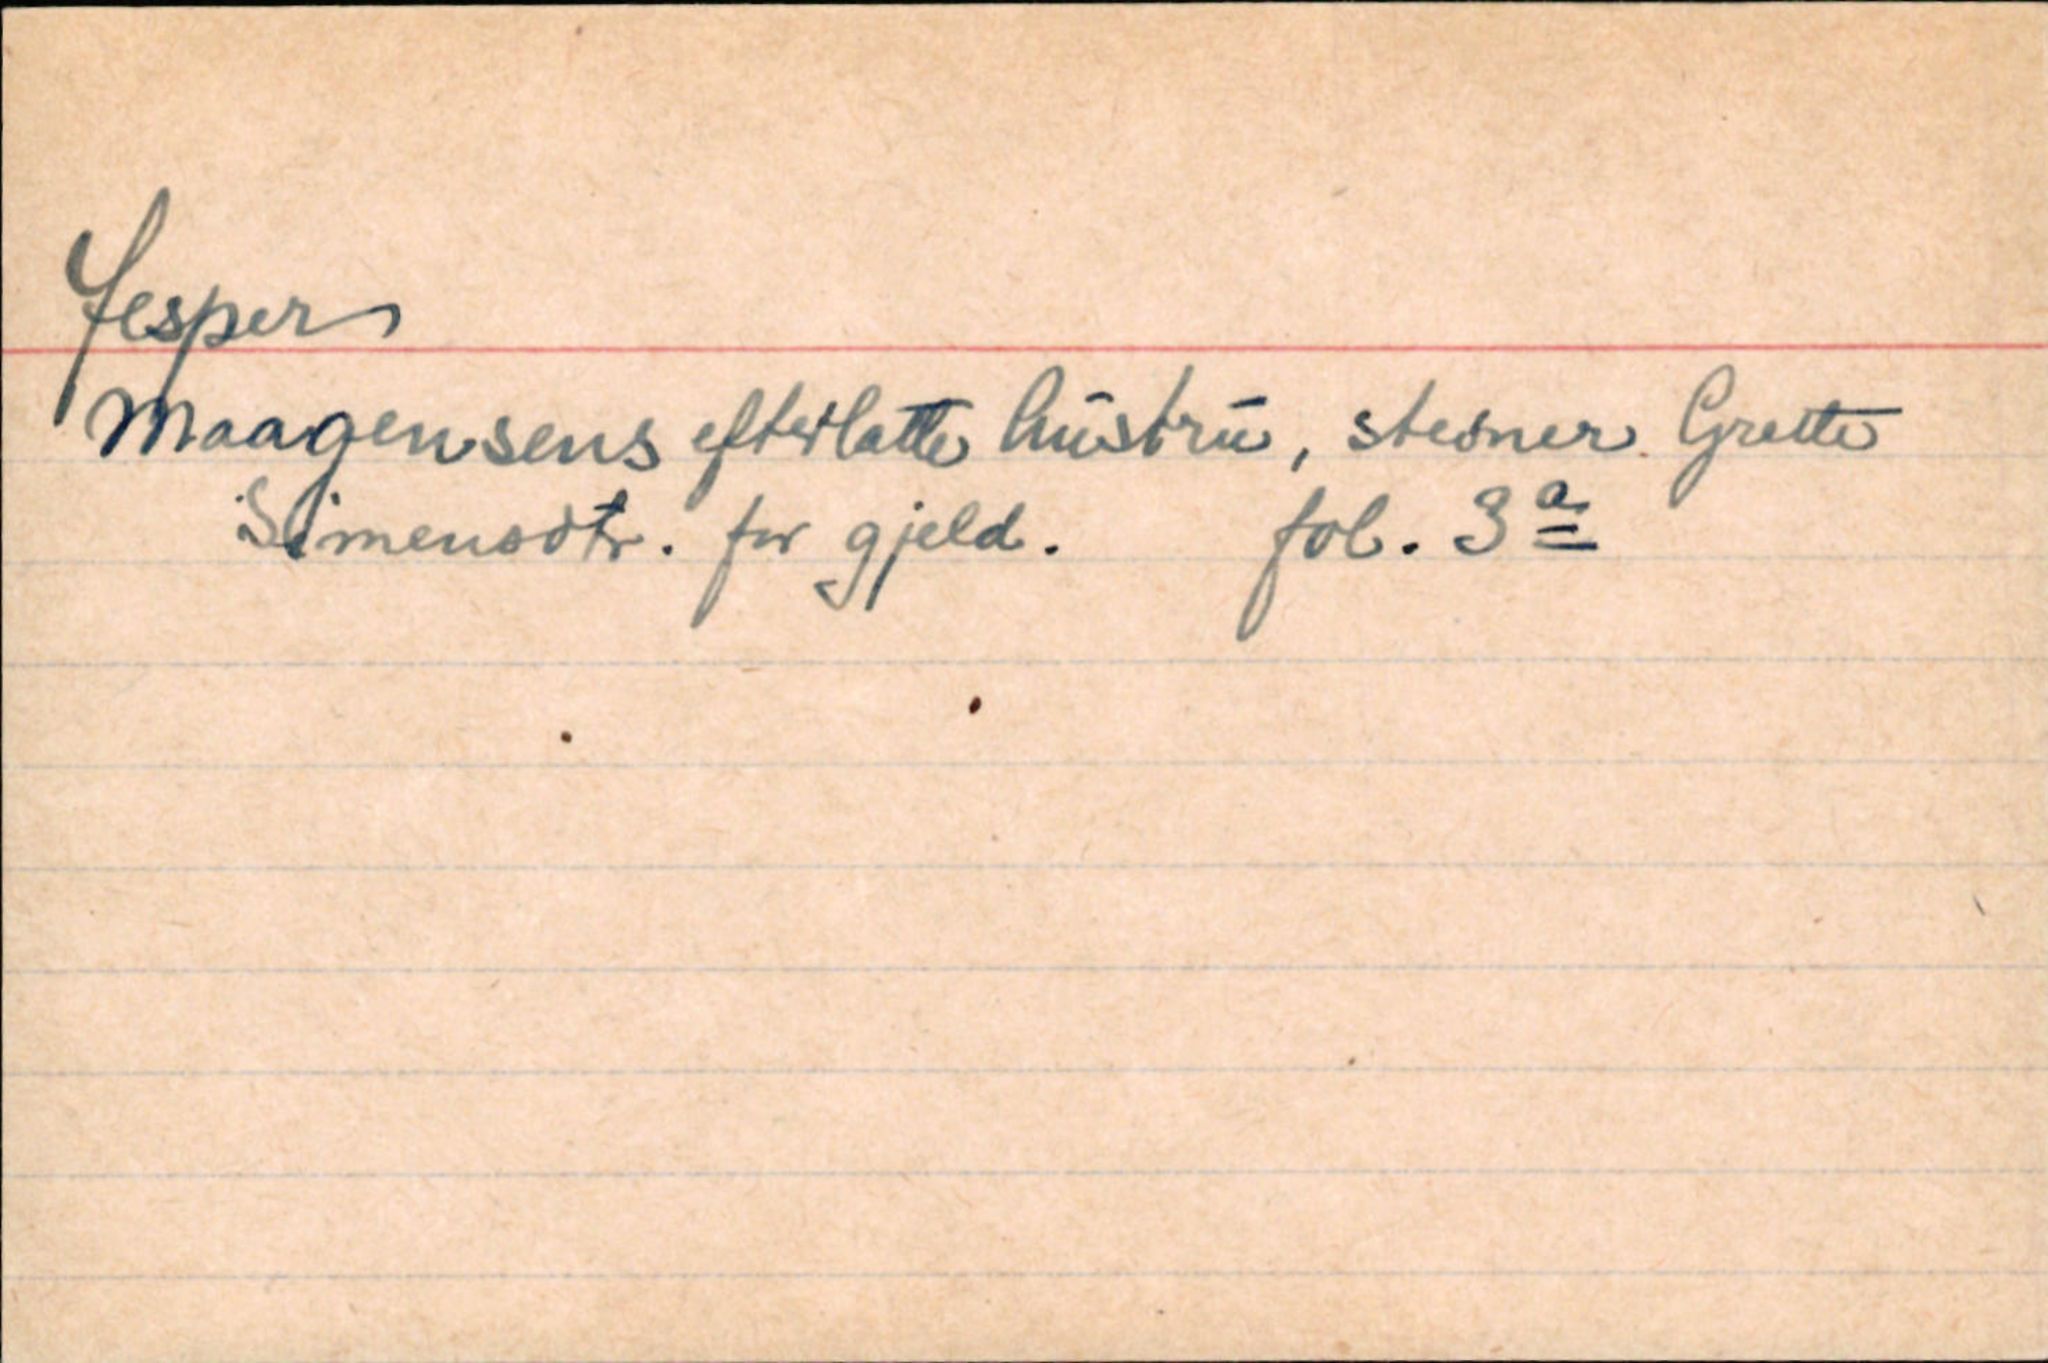 Jesper
Maagensens efterlatte hustru, stesner Grette
Simensdtr. for gjeld. fol. 3a